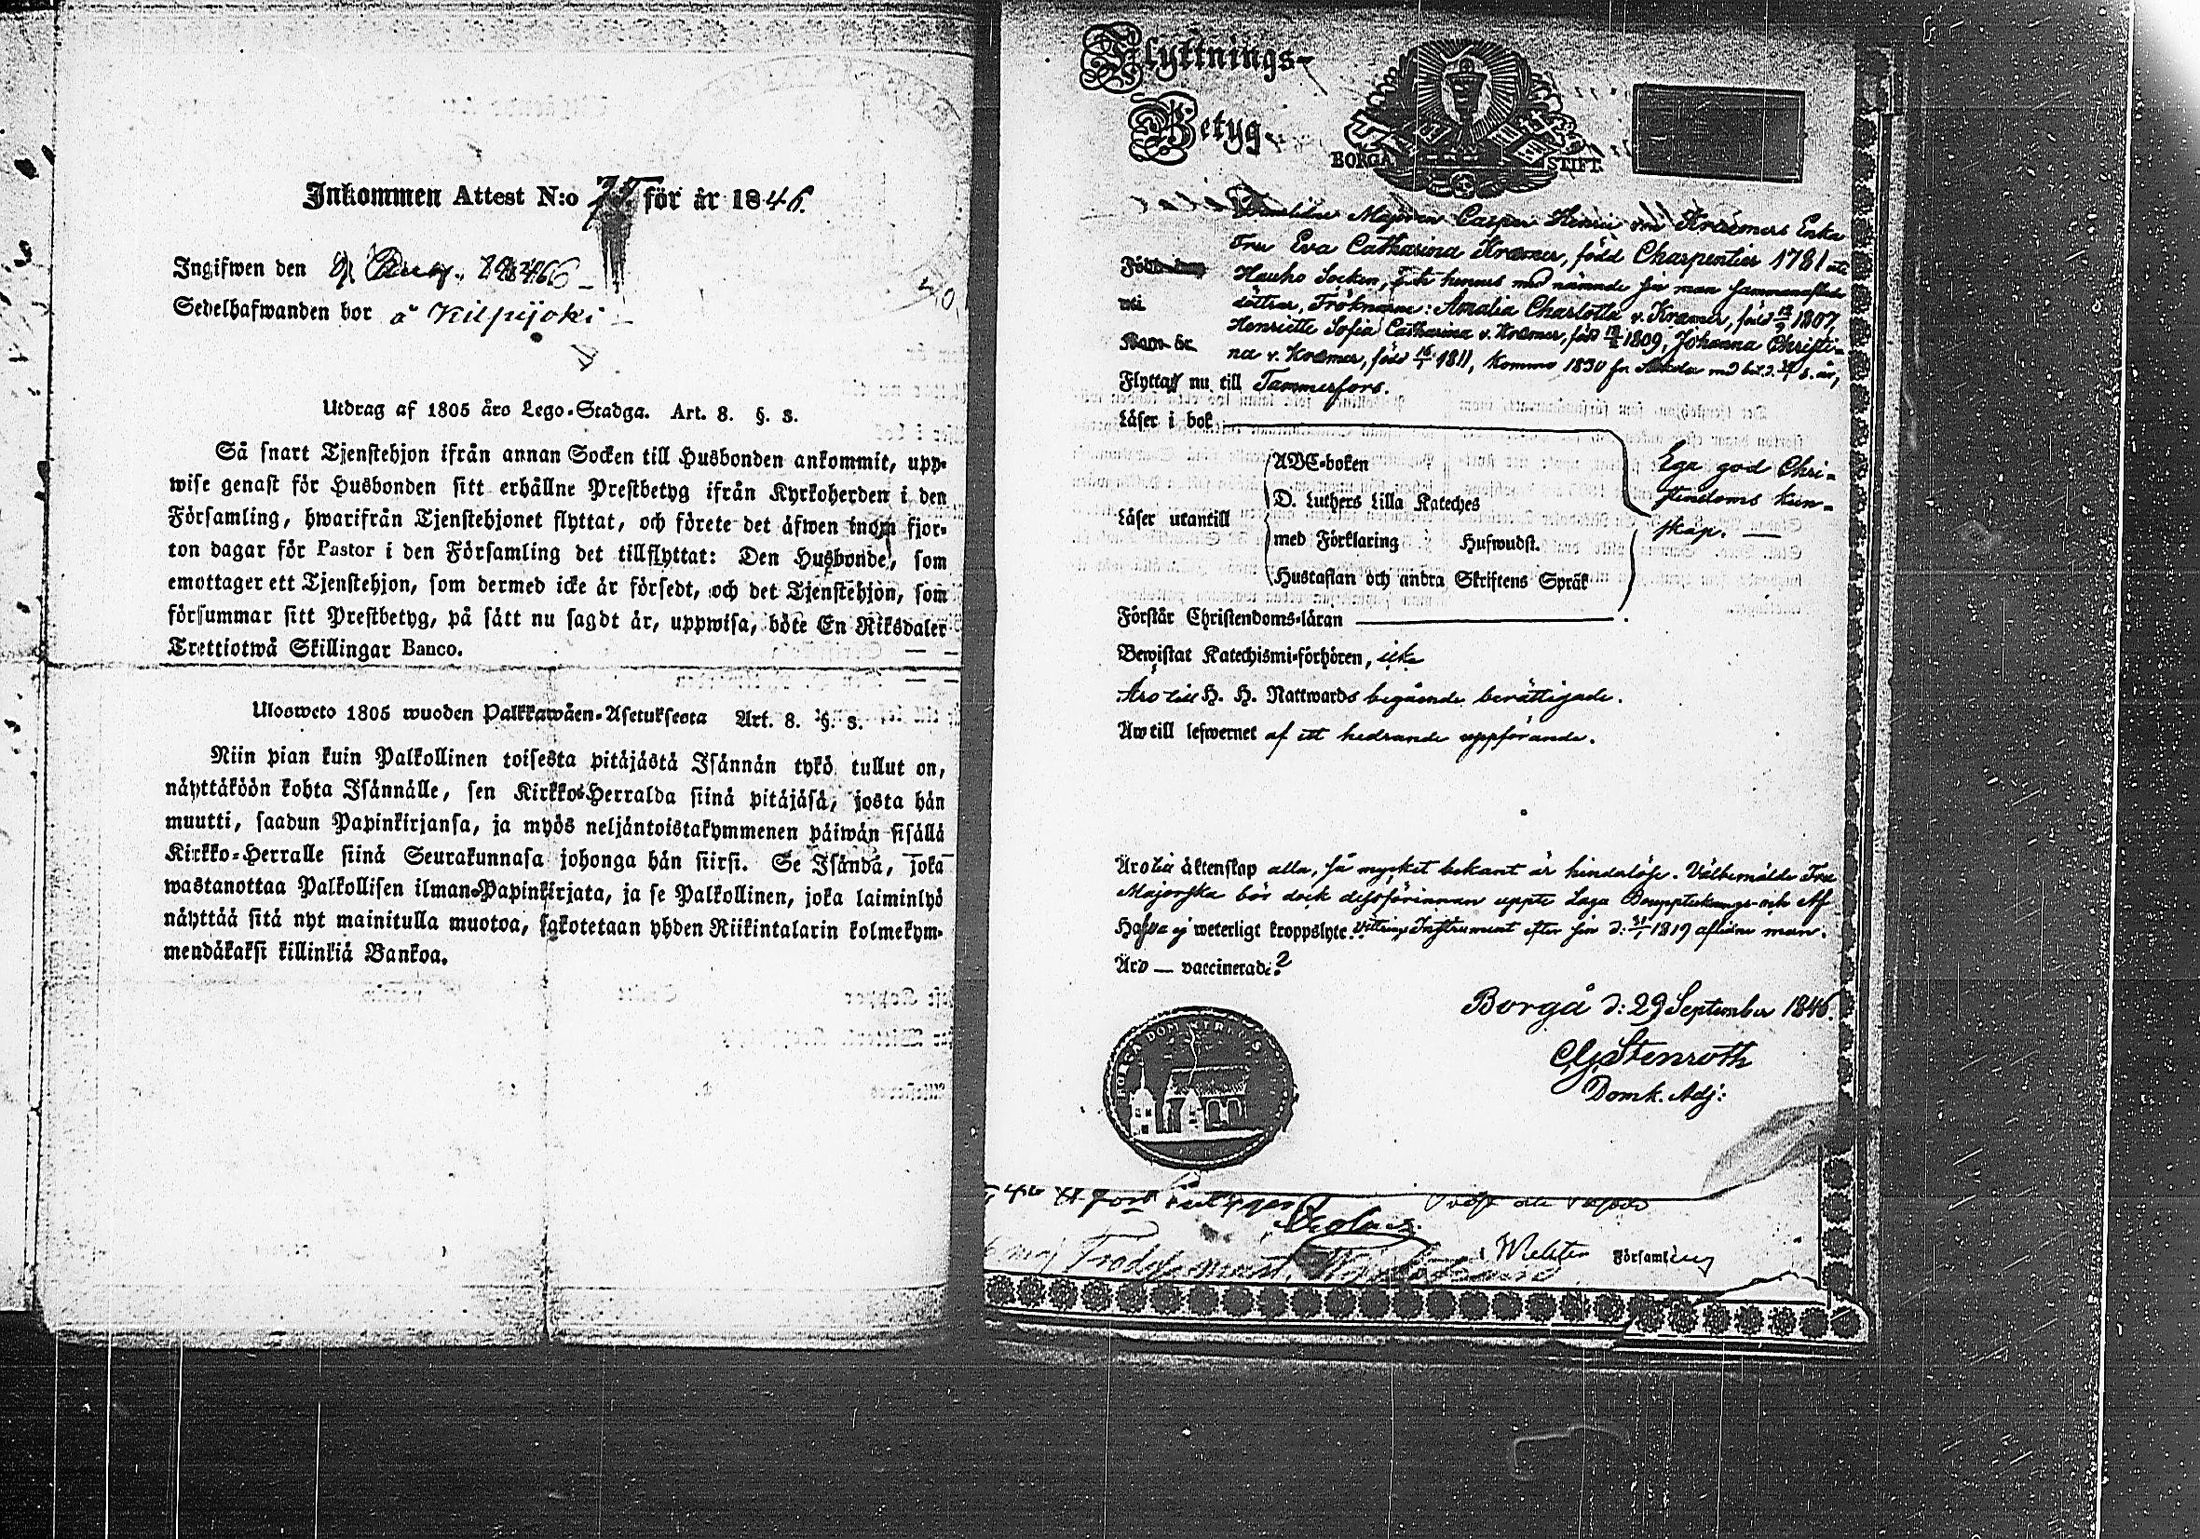 Inkommen Attest N:o för år 1846.
Ingifwen den
Sedelhafwanden bor å Kilpijoki
Utdrag af 1805 års Lego-Stadga. Art. 8. §. 3.
Så snart Tjenstehjon ifrån annan Socken till Husbonden ankommit, upp-
wise genast för Husbonden sitt erhållne Prestbetyg ifrån Kyrkoherden i den
Församling, hwarifrån Tjenstehjonet flyttat, och förete det äfwen inom fjor-
ton dagar för Pastor i den Församling det tillflyttat: Den Husbonde, som
emottager ett Tjenstehjon, som dermed icke är försedt, och det Tjenstehjon, som
försummar sitt Prestbetyg, på sätt nu sagdt är, uppwisa, böte En Riksdaler
Trettiotwå Skillingar Banco.
Ulosweto 1805 wuoden Palkkawäen-Asetuksesta Art. 8. §. 3.
Niin pian kuin Palkollinen toisesta pitäjästä Isännän tykö tullut on,
näyttäköön kohta Isännälle, sen Kirkko-Herralda siinä pitäjäsä, josta hän
muutti, saadun Papinkirjansa, ja myös neljäntoistakymmenen päiwän sisällä
Kirkko-Herralle siinä Seurakunnasa johonga hän siirsi. Se Isändä, joka
wastanottaa Palkollisen ilman Papinkirjata, ja se Palkollinen, joka laiminlyö
näyttää sitä nyt mainitulla muotoa, sakotetaan yhden Riikintalarin kolmekym-
mendäkaksi killinkiä Bankoa.
Flyttnings-
Betyg.
BORGÅ STIFT.
Majoren Casper Henric von Kræmers Enka
Fru Eva Catharina Kræmer, född Charpentier 1781 uti
Hauho Socken, hennes med nämnde sin man sammanaflade
döttrar, Fröknarne: Amalia Charlotta v. Kræmer, född 1807,
Henriette Sofia Catharina v. Kræmer, född 1809, Johanna Christi-
na v. Kræmer, född 1811, komma 1830 fr.
Flytta nu till Tammerfors.
Läser i bok
ABC-boken
D. Luthers Lilla Kateches
Läser utantill
med Förklaring Hufwudst.
Hustaflan och andra Skriftens Språk
Ega god Chri-
stendoms kun-
skap.
Förstår Christendoms-läran
Bewistat Katechismi-förhören, icke
Äro till H. H. Nattwards begående berättigade.
Äw till lefwernet af ett hedrande uppförande.
Äro till äktenskap alla, så mycket bekant är hinderlöse. Välbemälde Fru
Majorska bör dock dessförinnan uppte Laga Bouppteknings- och Af-
Hafva ej weterligt kroppslyte. vittrings Instrument efter sin d: 1819 aflidne man.
Äro — vaccinerade?
Borgå d: 29 September 1846.
CG Stenroth
Domk. Adj:
i Församling